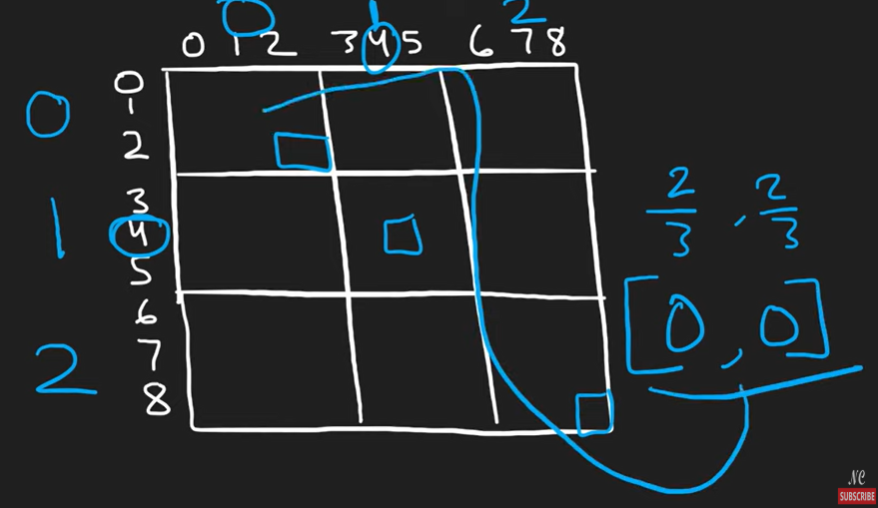 0 1 2
0 1 2 3 4 5 6 7 8
0
0
1
2
3
1
4
5
6
7
2
8
2/3 , 2/3
[0, 0]
NC
SUBSCRIBE